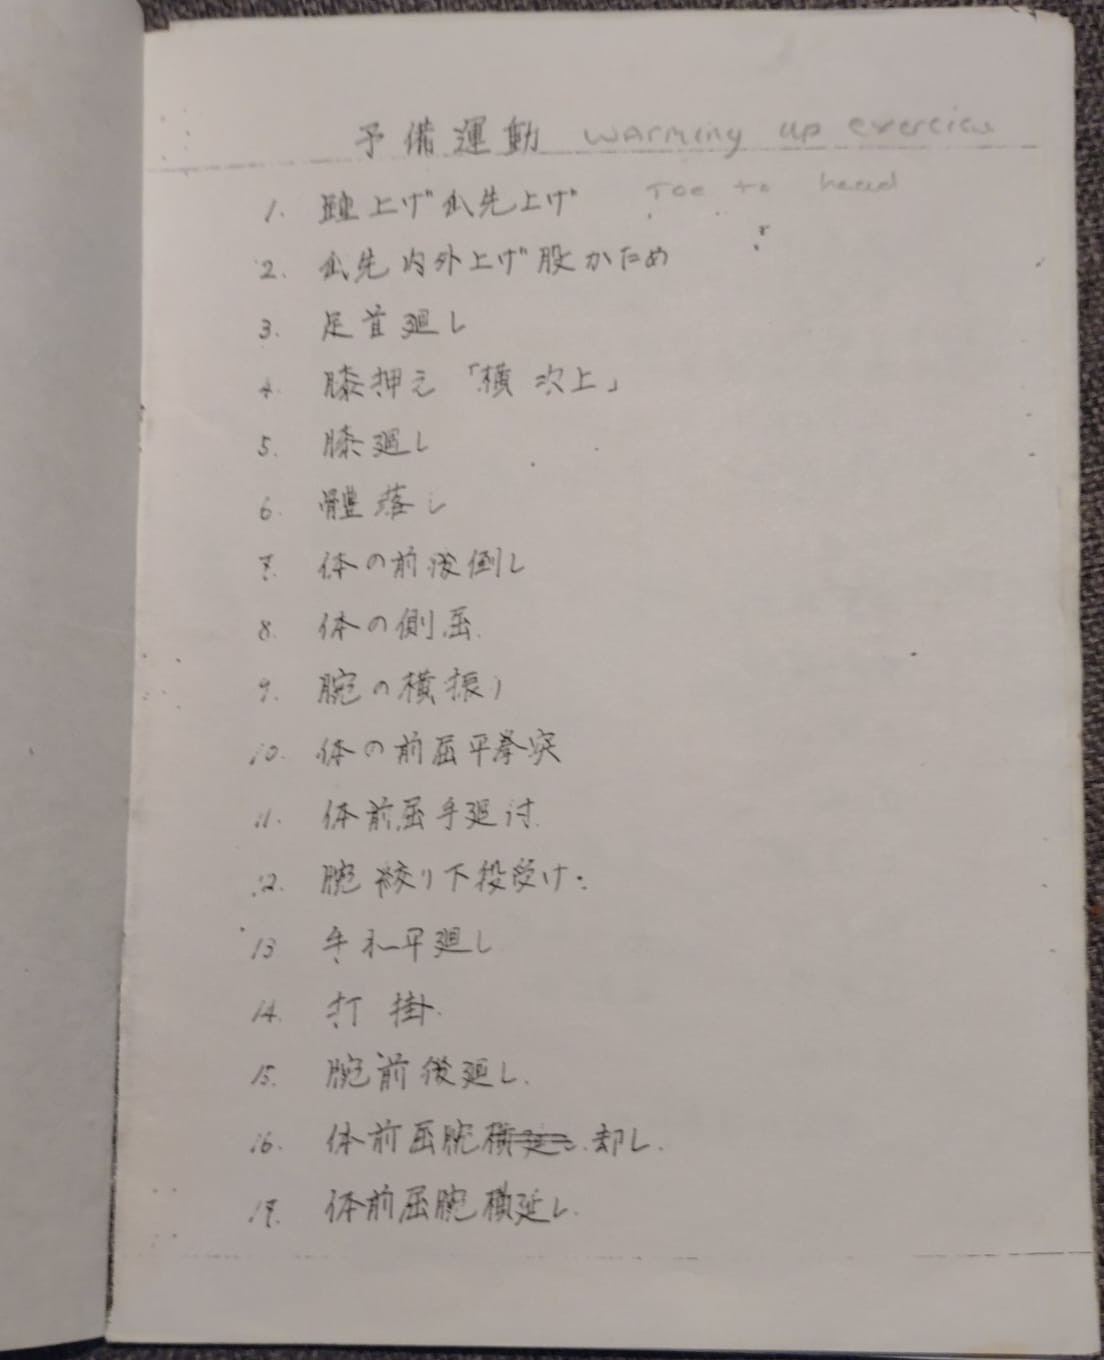 予備運動 warming up exercise
1. 踵上げ 爪先上げ Toe to head
2. 爪先内外上げ 股かため
3. 足首廻し
4. 膝押え「横 次上」
5. 膝廻し
6. 體落し
7. 体の前後倒し
8. 体の側屈.
9. 腕の横振り
10. 体の前屈平拳突
11. 体前屈手廻討.
12. 腕絞り下段受け.
13 手和平廻し
14. 打掛.
15. 腕前後廻し.
16. 体前屈腕横 却し.
17. 体前屈腕横延し.